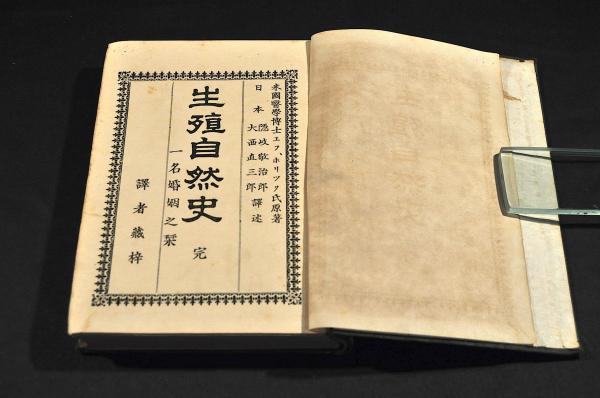 米國醫學博士エフ、ホリック氏原著
日本 隠岐敬治郎 大西直三郎 譯述
生殖自然史 完
一名婚姻之栞
譯者藏梓